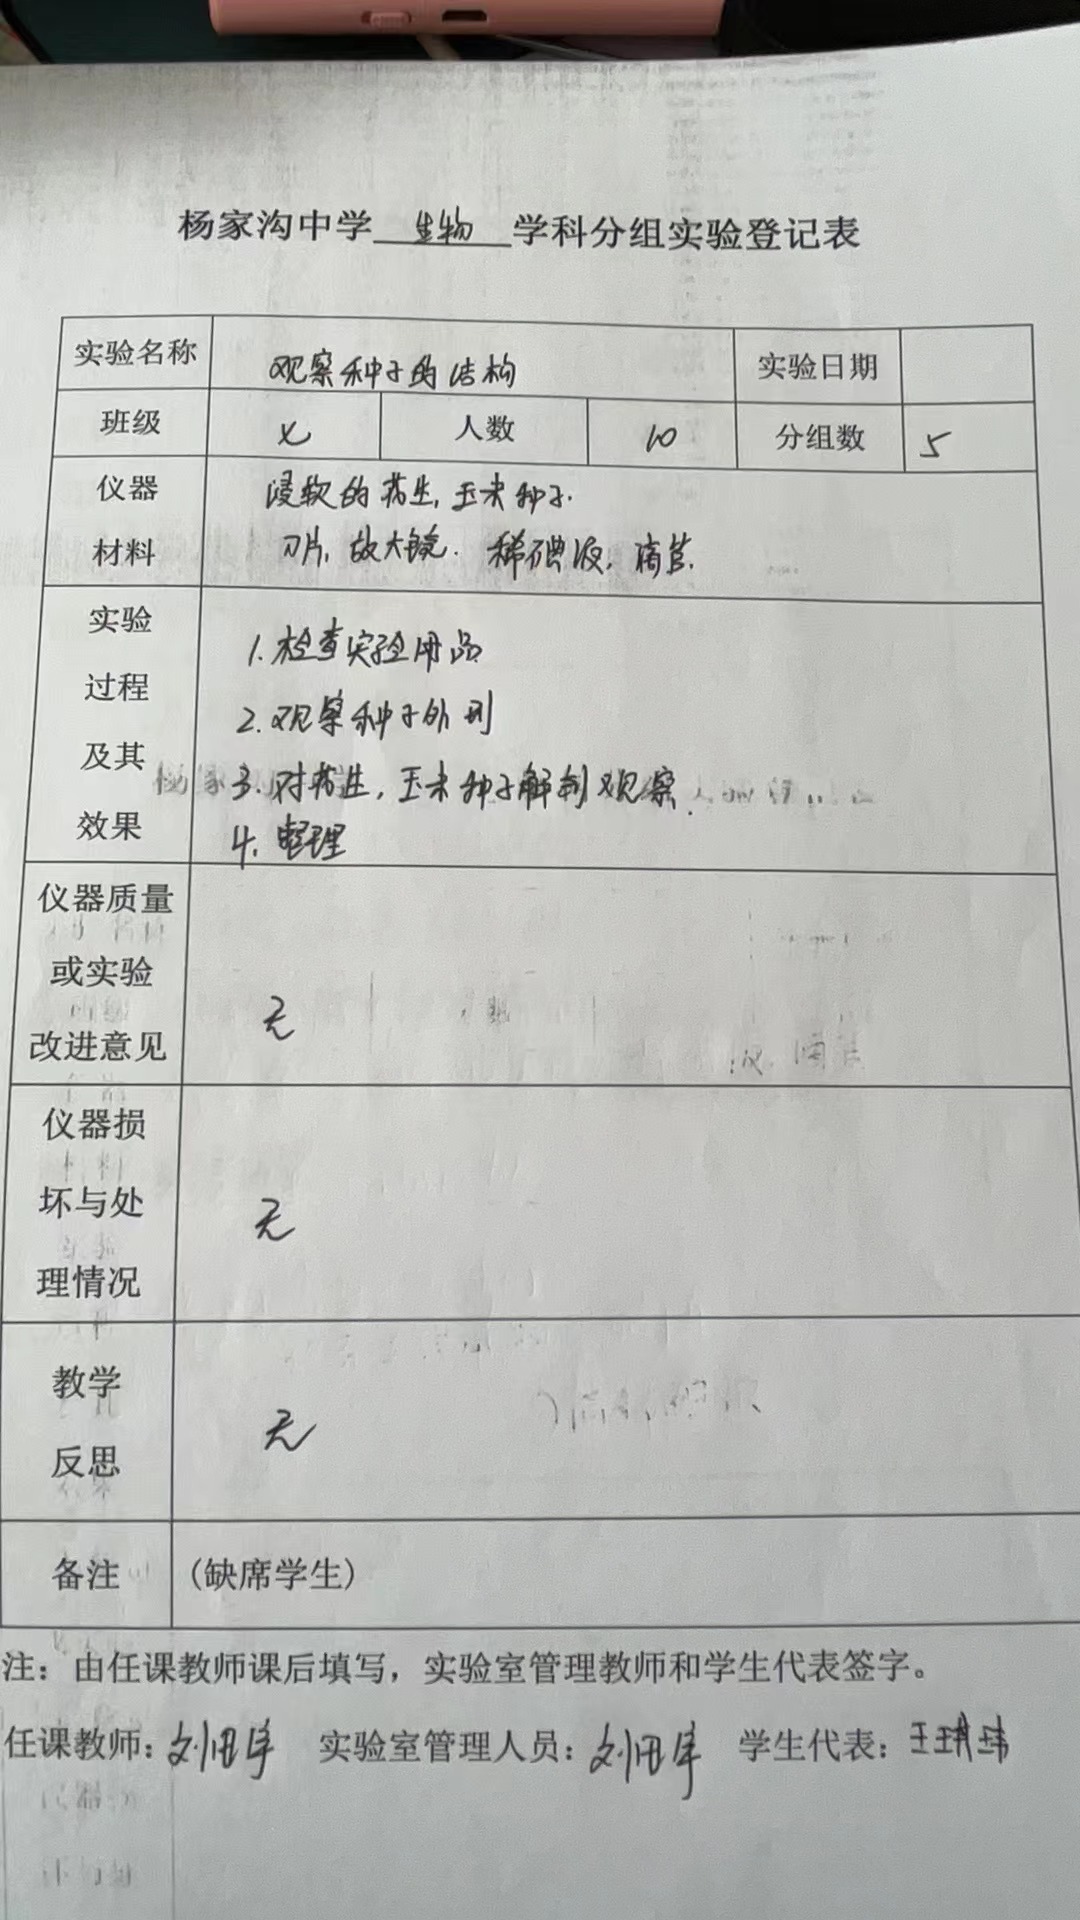 杨家沟中学 生物 学科分组实验登记表
实验名称 观察种子的结构 实验日期
班级 七 人数 10 分组数 5
仪器 浸软的花生, 玉米种子.
材料 刀片, 放大镜. 稀碘液, 滴管.
实验 1. 检查实验用品
过程 2. 观察种子外
及其 3. 对花生, 玉米种子解剖观察.
效果 4. 整理
仪器质量
或实验
改进意见 无
仪器损
坏与处 无
理情况
教学 无
反思
备注 (缺席学生)
注：由任课教师课后填写，实验室管理教师和学生代表签字。
任课教师: 刘 实验室管理人员: 刘 学生代表: 王